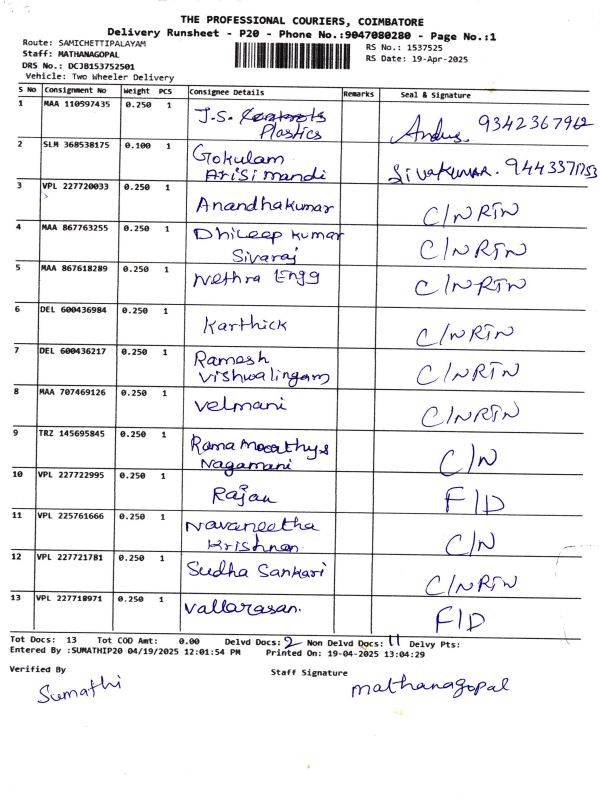 THE PROFESSIONAL COURIERS, COIMBATORE
Delivery Runsheet - P20 - Phone No.:9047080280 - Page No.:1
Route: SAMICHETTIPALAYAM RS No.: 1537525
Staff: MATHANAGOPAL RS Date: 19-Apr-2025
DRS No.: DCJB153752501
Vehicle: Two Wheeler Delivery
S No Consignment No Weight PCS Consignee Details Remarks Seal & Signature
1 MAA 110597435 0.250 1 J.S. Plastics 9342367962
2 SLM 368538175 0.100 1 Gokulam Arisi mandi Sivakumar.
3 VPL 227720033 0.250 1 Anandhakumar C/NRTN
4 MAA 867763255 0.250 1 Dhileep kumar Sivaraj C/NRTN
5 MAA 867618289 0.250 1 Nethra Engg C/NRTN
6 DEL 600436984 0.250 1 Karthick C/NRTN
7 DEL 600436217 0.250 1 Ramesh Vishwalingam C/NRTN
8 MAA 707469126 0.250 1 Velmani C/NRTN
9 TRZ 145695845 0.250 1 Nagamani C/N
10 VPL 227722995 0.250 1 Rajan F/D
11 VPL 225761666 0.250 1 Navaneetha Krishnan. C/N
12 VPL 227721781 0.250 1 Sudha Sankari C/NRTN
13 VPL 227718971 0.250 1 Vallarasan. F/D
Tot Docs: 13 Tot COD Amt: 0.00 Delvd Docs: 2 Non Delvd Docs: 11 Delvy Pts:
Entered By :SUMATHIP20 04/19/2025 12:01:54 PM Printed On: 19-04-2025 13:04:29
Verified By Staff Signature
Sumathi mathanagopal